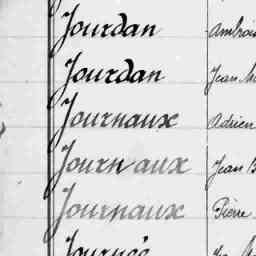 Jourdan Ambrois
Jourdan Jean M
Journaux Adrien
Journaux Jean B
Journaux Pierre
Journée